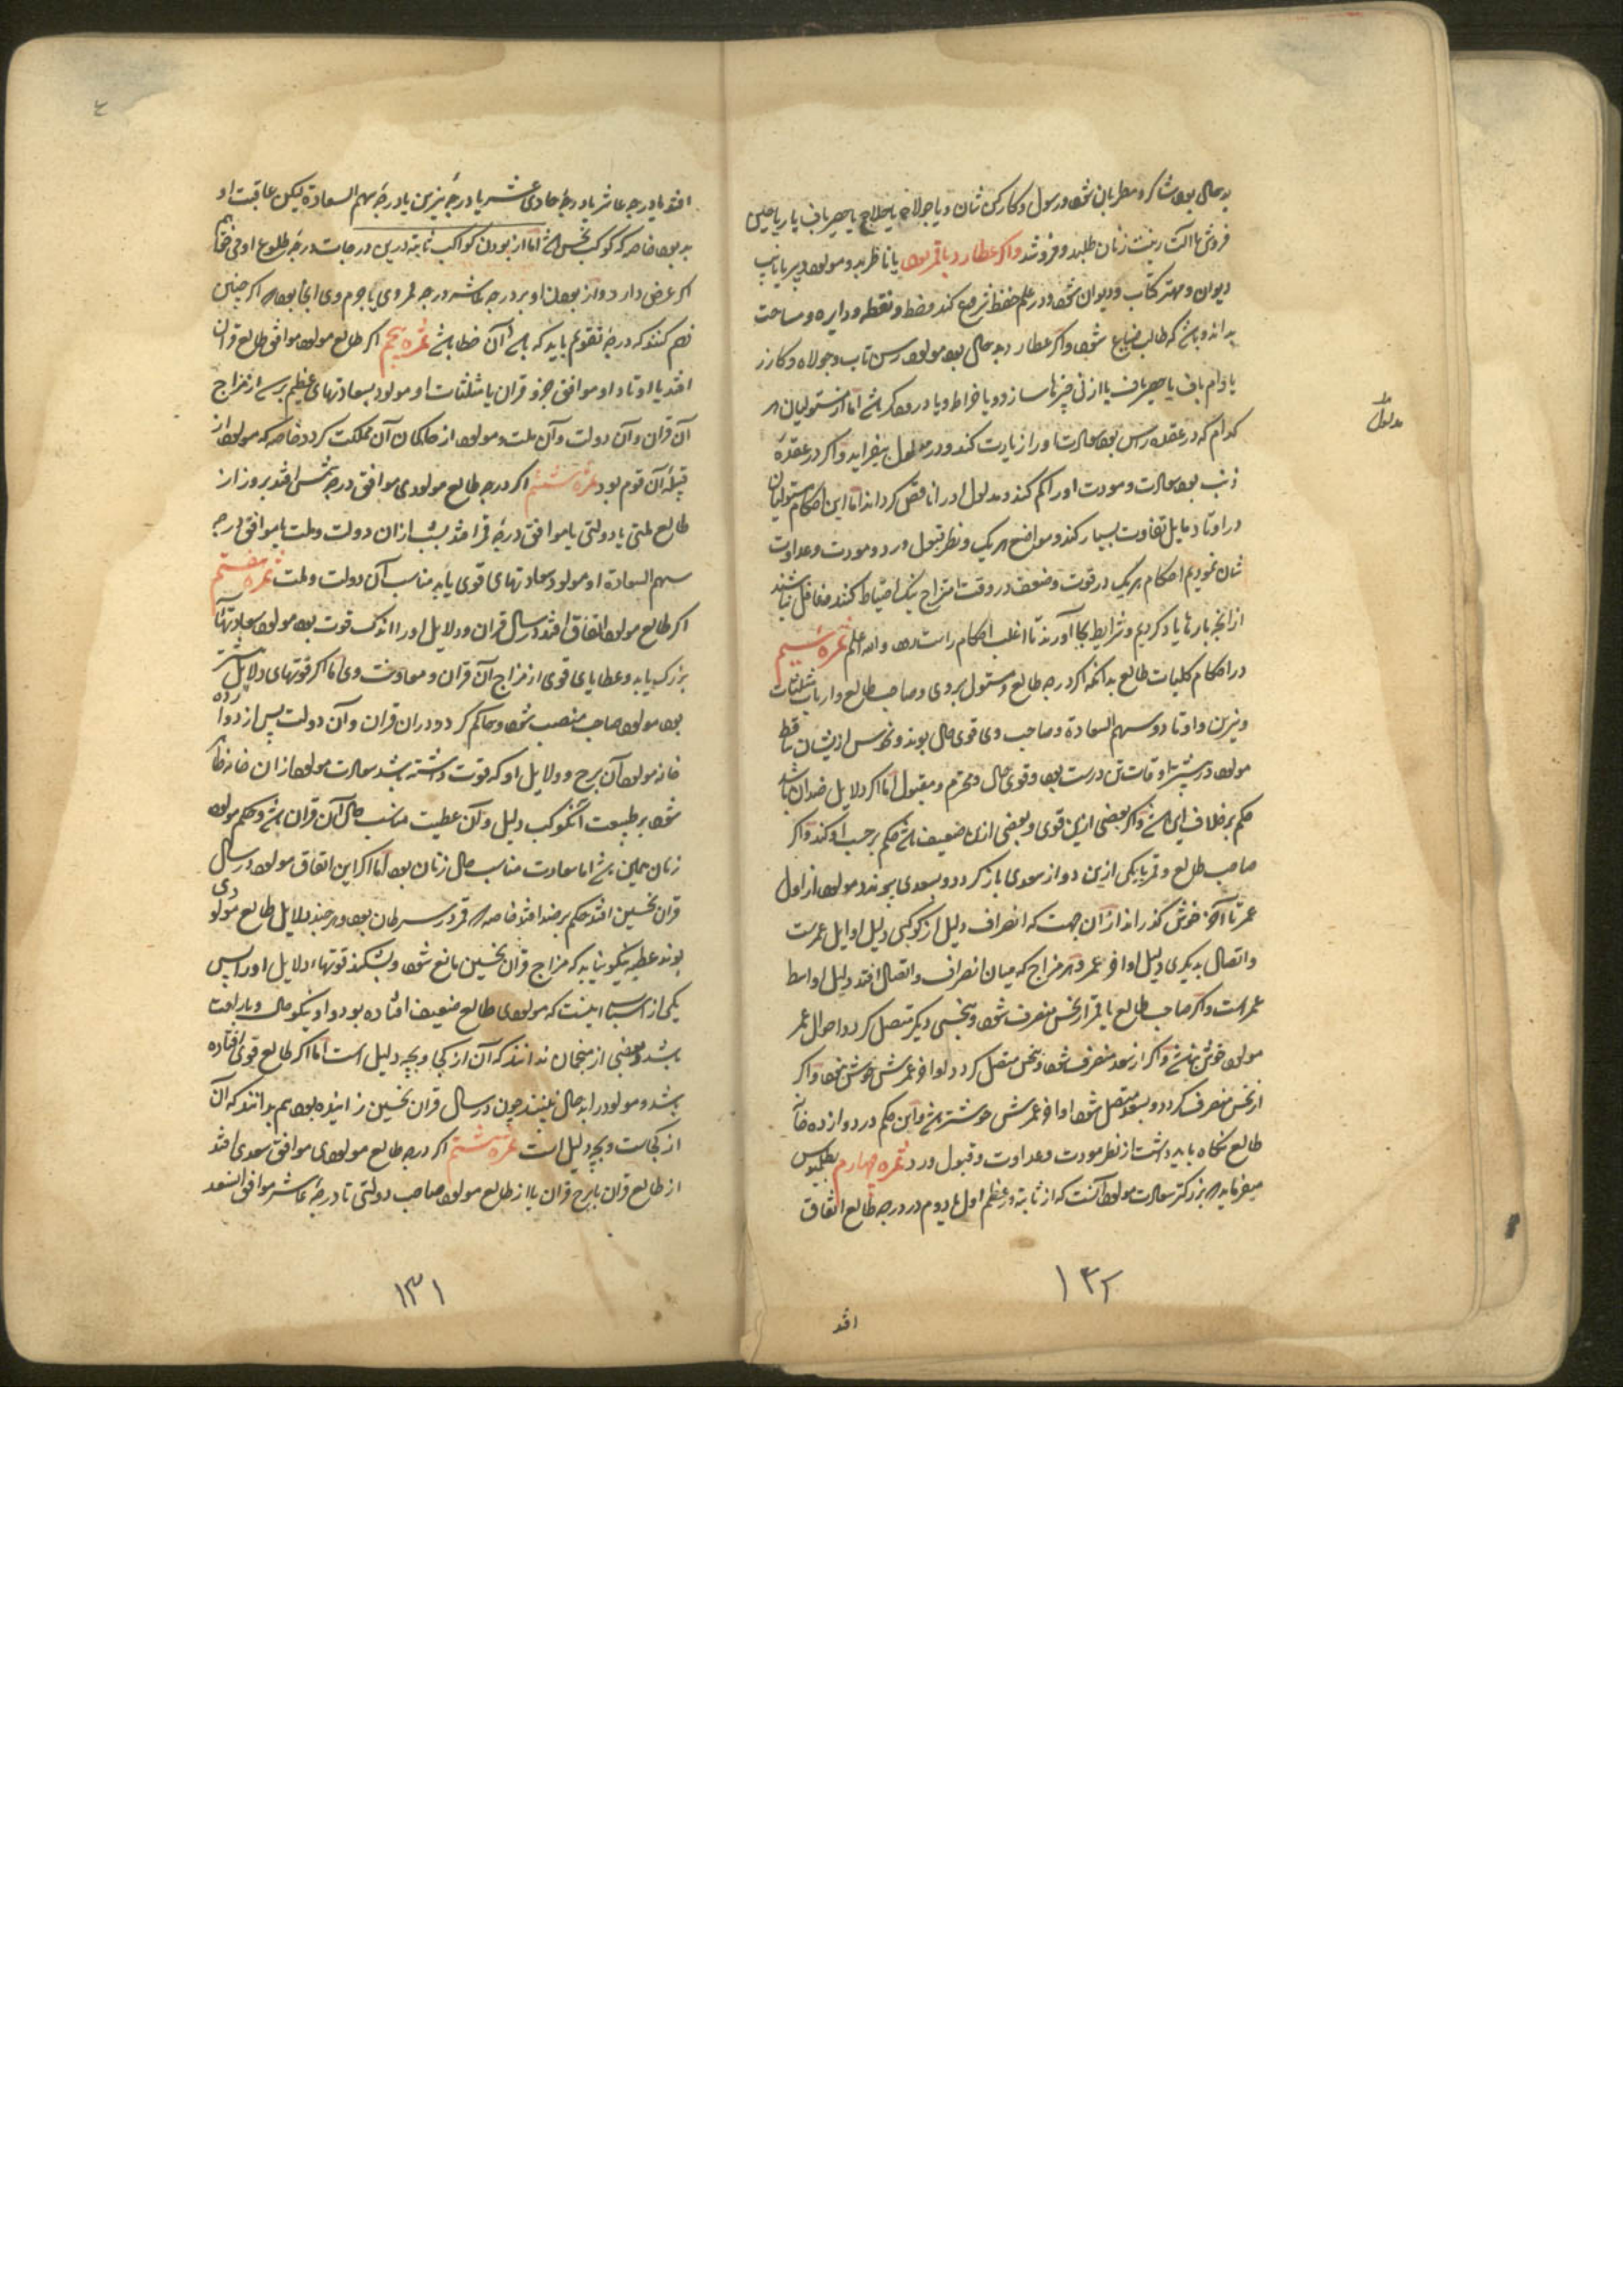 بدحال بود شاکرد مطربان شود و رسول و کارکن شان و یا جولاه یا حلاج یا حصیرباف یا ریاحین
فروش یا آلت زینت زنان طلبد و فروشد واکر عطارد با قمر بود یا ناظر بدو مولود دبیر یا نایب
دیوان و مهتر کتاب و دیوان شود و در علم حفظ شروع کند و خط و نقطه و دایره و مساحت
بداند و باشد که طالب ضیاع شود و اکر عطارد بدحال بود مولود رسن تاب و جولاه و کازر
یا دام باف یا حصیرباف یا از نی چیزها سازد و یا خراط و یا درودکر باشد اما از مستولیان هر
کدام که در عقده راس بود سعادت او را زیادت کند و در مدلول بیفزاید و اکر در عقده
مدلول
ذنب بود سعادت و مودت او را کم کند و مدلول او را ناقص کرداند اما این احکام مستولیان
در اوتاد و مایل تفاوت بسیار کند و مواضع هر یک و نظر قبول و رد و مودت و عداوت
شان نمودیم احکام هر یک در قوت و ضعف در وقت امتزاج نیک احتیاط کنند و غافل نباشند
از آنچه بارها یاد کردیم و شرایط بجا آورند تا اغلب احکام راست بود و الله اعلم ثمره سیم
در احکام کلیات طالع بدانکه اکر درجه طالع و مستولی بر وی و صاحب طالع و ارباب مثلثات
و نیرین و اوتاد و سهم السعادة و صاحب وی قوی حال بوند و نحوس ازیشان ساقط
مولود در بیشتر اوقات تن درست بود و قوی حال و محترم و مقبول اما اکر دلایل ضد آن باشد
حکم بر خلاف این باشد و اکر بعضی ازین قوی و بعضی ازین ضعیف باشد حکم بر حسب او کند و اکر
صاحب طالع و قمر یا یکی ازین دو از سعدی باز کردد و بسعدی پیوندد مولود از اول
عمر تا آخر خوش کذراند از آن جهت که انصراف دلیل از کوکبی دلیل اوایل عمرست
و اتصال بدیکری دلیل اواخر عمر و هر مزاج که میان انصراف و اتصال افتد دلیل اواسط
عمر است و اکر صاحب طالع یا قمر از نحس منصرف شود و بنحسی دیکر متصل کردد احوال عمر
مولود خوش نباشد و اکر از سعد منصرف شود و بنحس متصل کردد اواخر عمرش خوش نبود و اکر
از نحس منصرف کردد و بسعد متصل شود اواخر عمرش خوشتر باشد و این حکم در دوازده خانه
طالع نکاه باید داشت از نظر مودت و عداوت و قبول و رد ثمره چهارم بطلمیوس
میفرماید که بزرکتر سعادت مولود آنست که از ثابته در عظم اول یا دوم در درجه طالع اتفاق
۱۳۲
افتد
۴
افتد یا درجه عاشر یا درجهٔ حادی عشر یا درجهٔ نیرین یا درجهٔ سهم السعادة لیکن عاقبت او
بد بود خاصه که کوکب نحس باشد اما از بودن کواکب ثابته درین درجات درجهٔ طلوع او می خواهم
اکر عرض دارد و از بودن او بر درجه عاشر درجه ممر وی یا جرم وی آنجا بود که اکر چنین
فهم کنند که درجهٔ تقویم باید که باشد آن خطا باشد ثمره پنجم اکر طالع مولود موافق طالع قران
افتد یا اوتاد او موافق جزو قران یا مثلثات او مولود بسعادتهای عظیم برسد از مزاج
آن قران و آن دولت و آن ملت و مولود از حاکمان آن مملکت کردد خاصه که مولود از
قبیلهٔ آن قوم بود ثمره ششم اکر درجه طالع مولودی موافق درجه شمس افتد بروز از
طالع ملتی یا دولتی یا موافق درجهٔ قمر افتد بشب از آن دولت و ملت یا موافق درجه
سهم السعادة او مولود سعادتهای قوی یابد مناسب آن دولت و ملت ثمره هفتم
اکر طالع مولود اتفاق افتد در سال قران و دلایل او را اندک قوت بود مولود سعادتهای
بزرک یابد و عطایای قوی از مزاج آن قران و معاونت وی اما اکر قوتهای دلایل بیشتر
بود مولود صاحب منصب شود و حاکم کردد در آن قران و آن دولت پس از دوازده
خانه مولود آن برج و دلایل او که قوت داشته باشد سعادت مولود از آن خانه ظاهر
شود بر طبیعت آن کوکب دلیل و آن عطیت مناسب حال آن قران باشد و حکم مولود
زنان همین باشد اما سعادت مناسب حال زنان بود اما اکر این اتفاق مولود در سال
قران نحسین افتد حکم بر ضد افتد خاصه که قمر در سرطان بود و هر چند دلایل طالع مولودی
بوند عطیه نیکو نیابد که مزاج قران نحسین مانع شود و بشکند قوتهاء دلایل او را پس
یکی از اسباب اینست که مولودی طالع ضعیف افتاده بود و او نیکو حال و با راحت
باشد و بعضی از منجمان ندانند که آن از کجا و بچه دلیل است اما اکر طالع قوی افتاده
باشد و مولود را بدحال بینند چون در سال قران نحسین زاینده بود هم بدانند که آن
از کجاست و بچه دلیل است ثمره هشتم اکر درجه طالع مولودی موافق سعدی افتد
از طالع قران یا برج قران یا از طالع مولود صاحب دولتی تا درجهٔ عاشر موافق السعد
۱۳۱